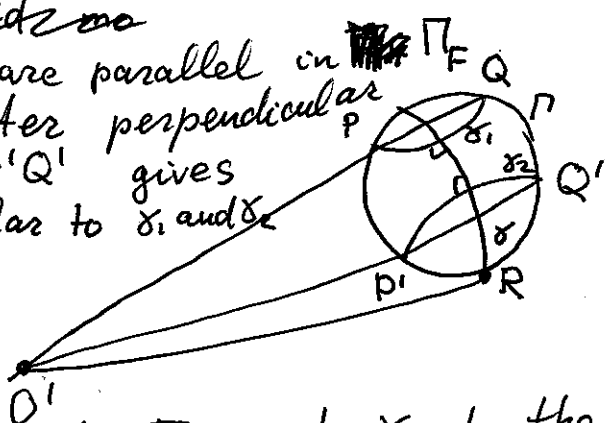 are parallel in Π_F
ter perpendicular
'Q' gives
lar to γ₁ and γ₂
Q
P
Π
γ₁
γ₂
Q'
γ
P'
R
O'